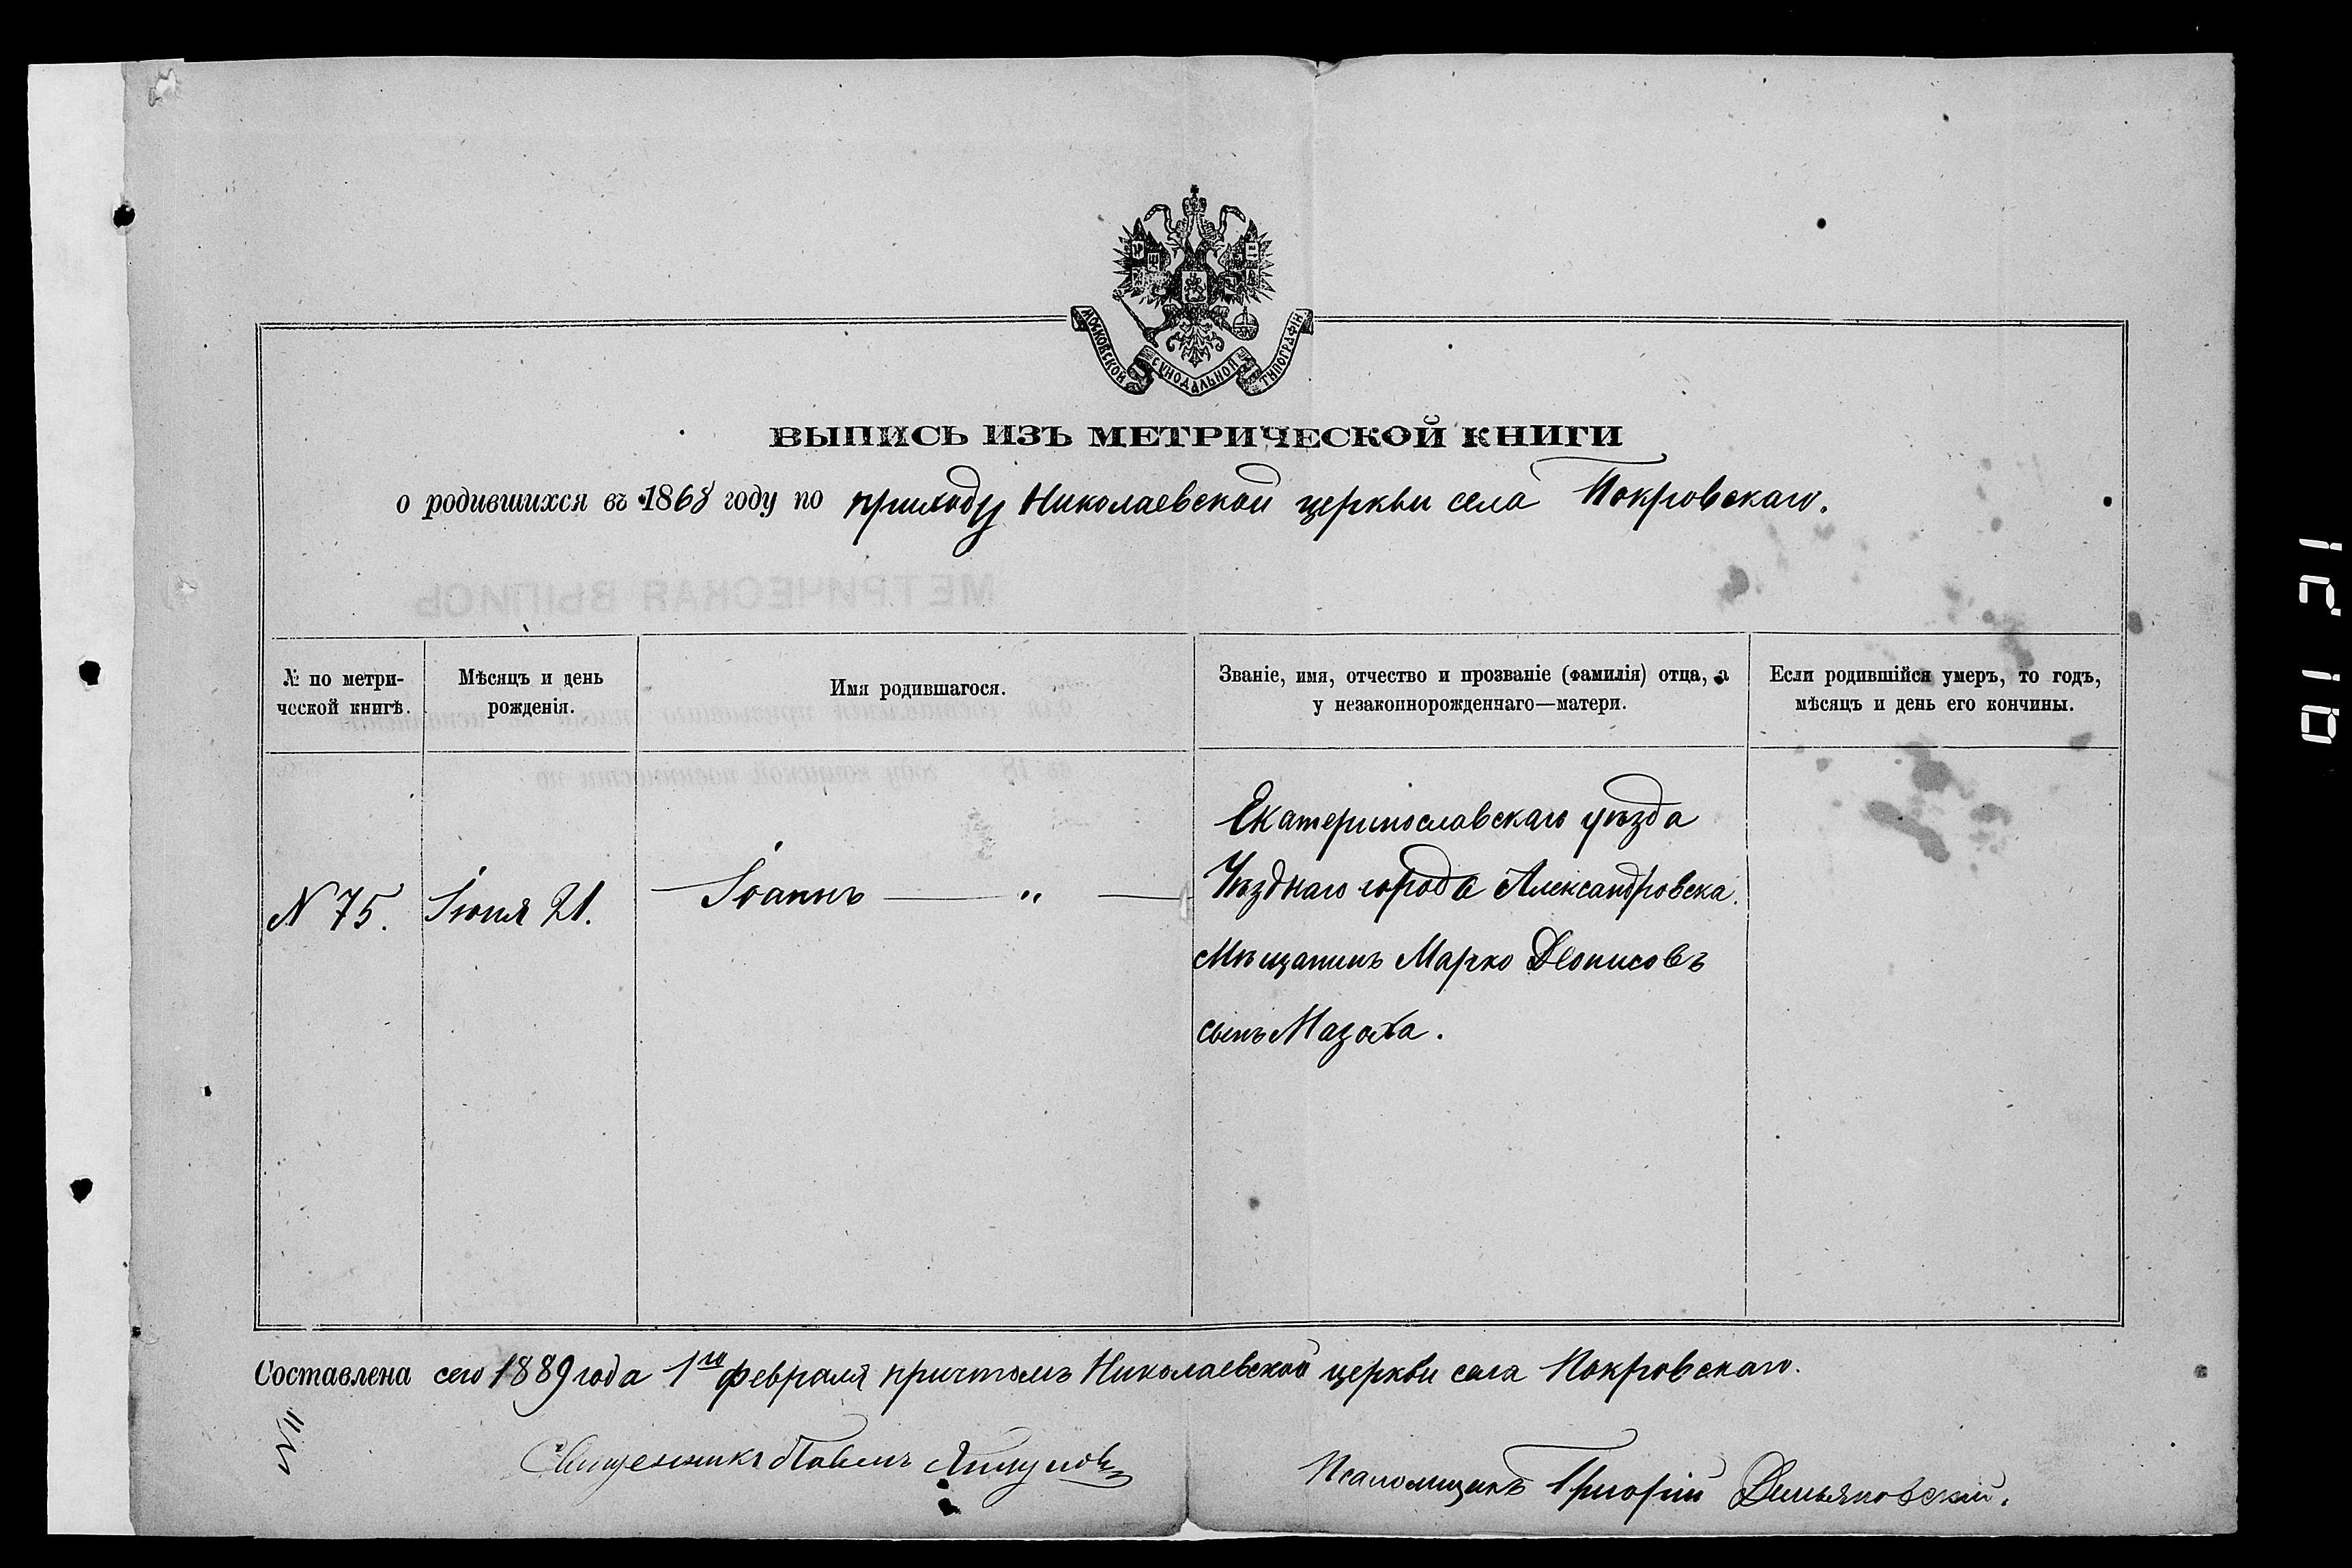 МОСКОВСКОЙ СѴНОДАЛЬНОЙ ТИПОГРАФІИ
ВЫПИСЬ ИЗЪ МЕТРИЧЕСКОЙ КНИГИ
о родившихся въ 1868 году по приходу Николаевской церкви села Покровскаго.
№ по метри-
ческой книгѣ.
Мѣсяцъ и день
рожденія.
Имя родившагося.
Званіе, имя, отчество и прозваніе (фамилія) отца, а
у незаконнорожденнаго—матери.
Если родившійся умеръ, то годъ,
мѣсяцъ и день его кончины.
N 75.
Іюня 21.
Іоаннъ — „ —
Екатеринославскаго уѣзда
Уѣзднаго города Александровска.
Мѣщанинъ Марко Деонисовъ
сынъ Мазаха.
Составлена сего 1889 года 1го февраля причтомъ Николаевской церкви села Покровскаго.
N 11
Священникъ Павелъ
Псаломщикъ Григорій